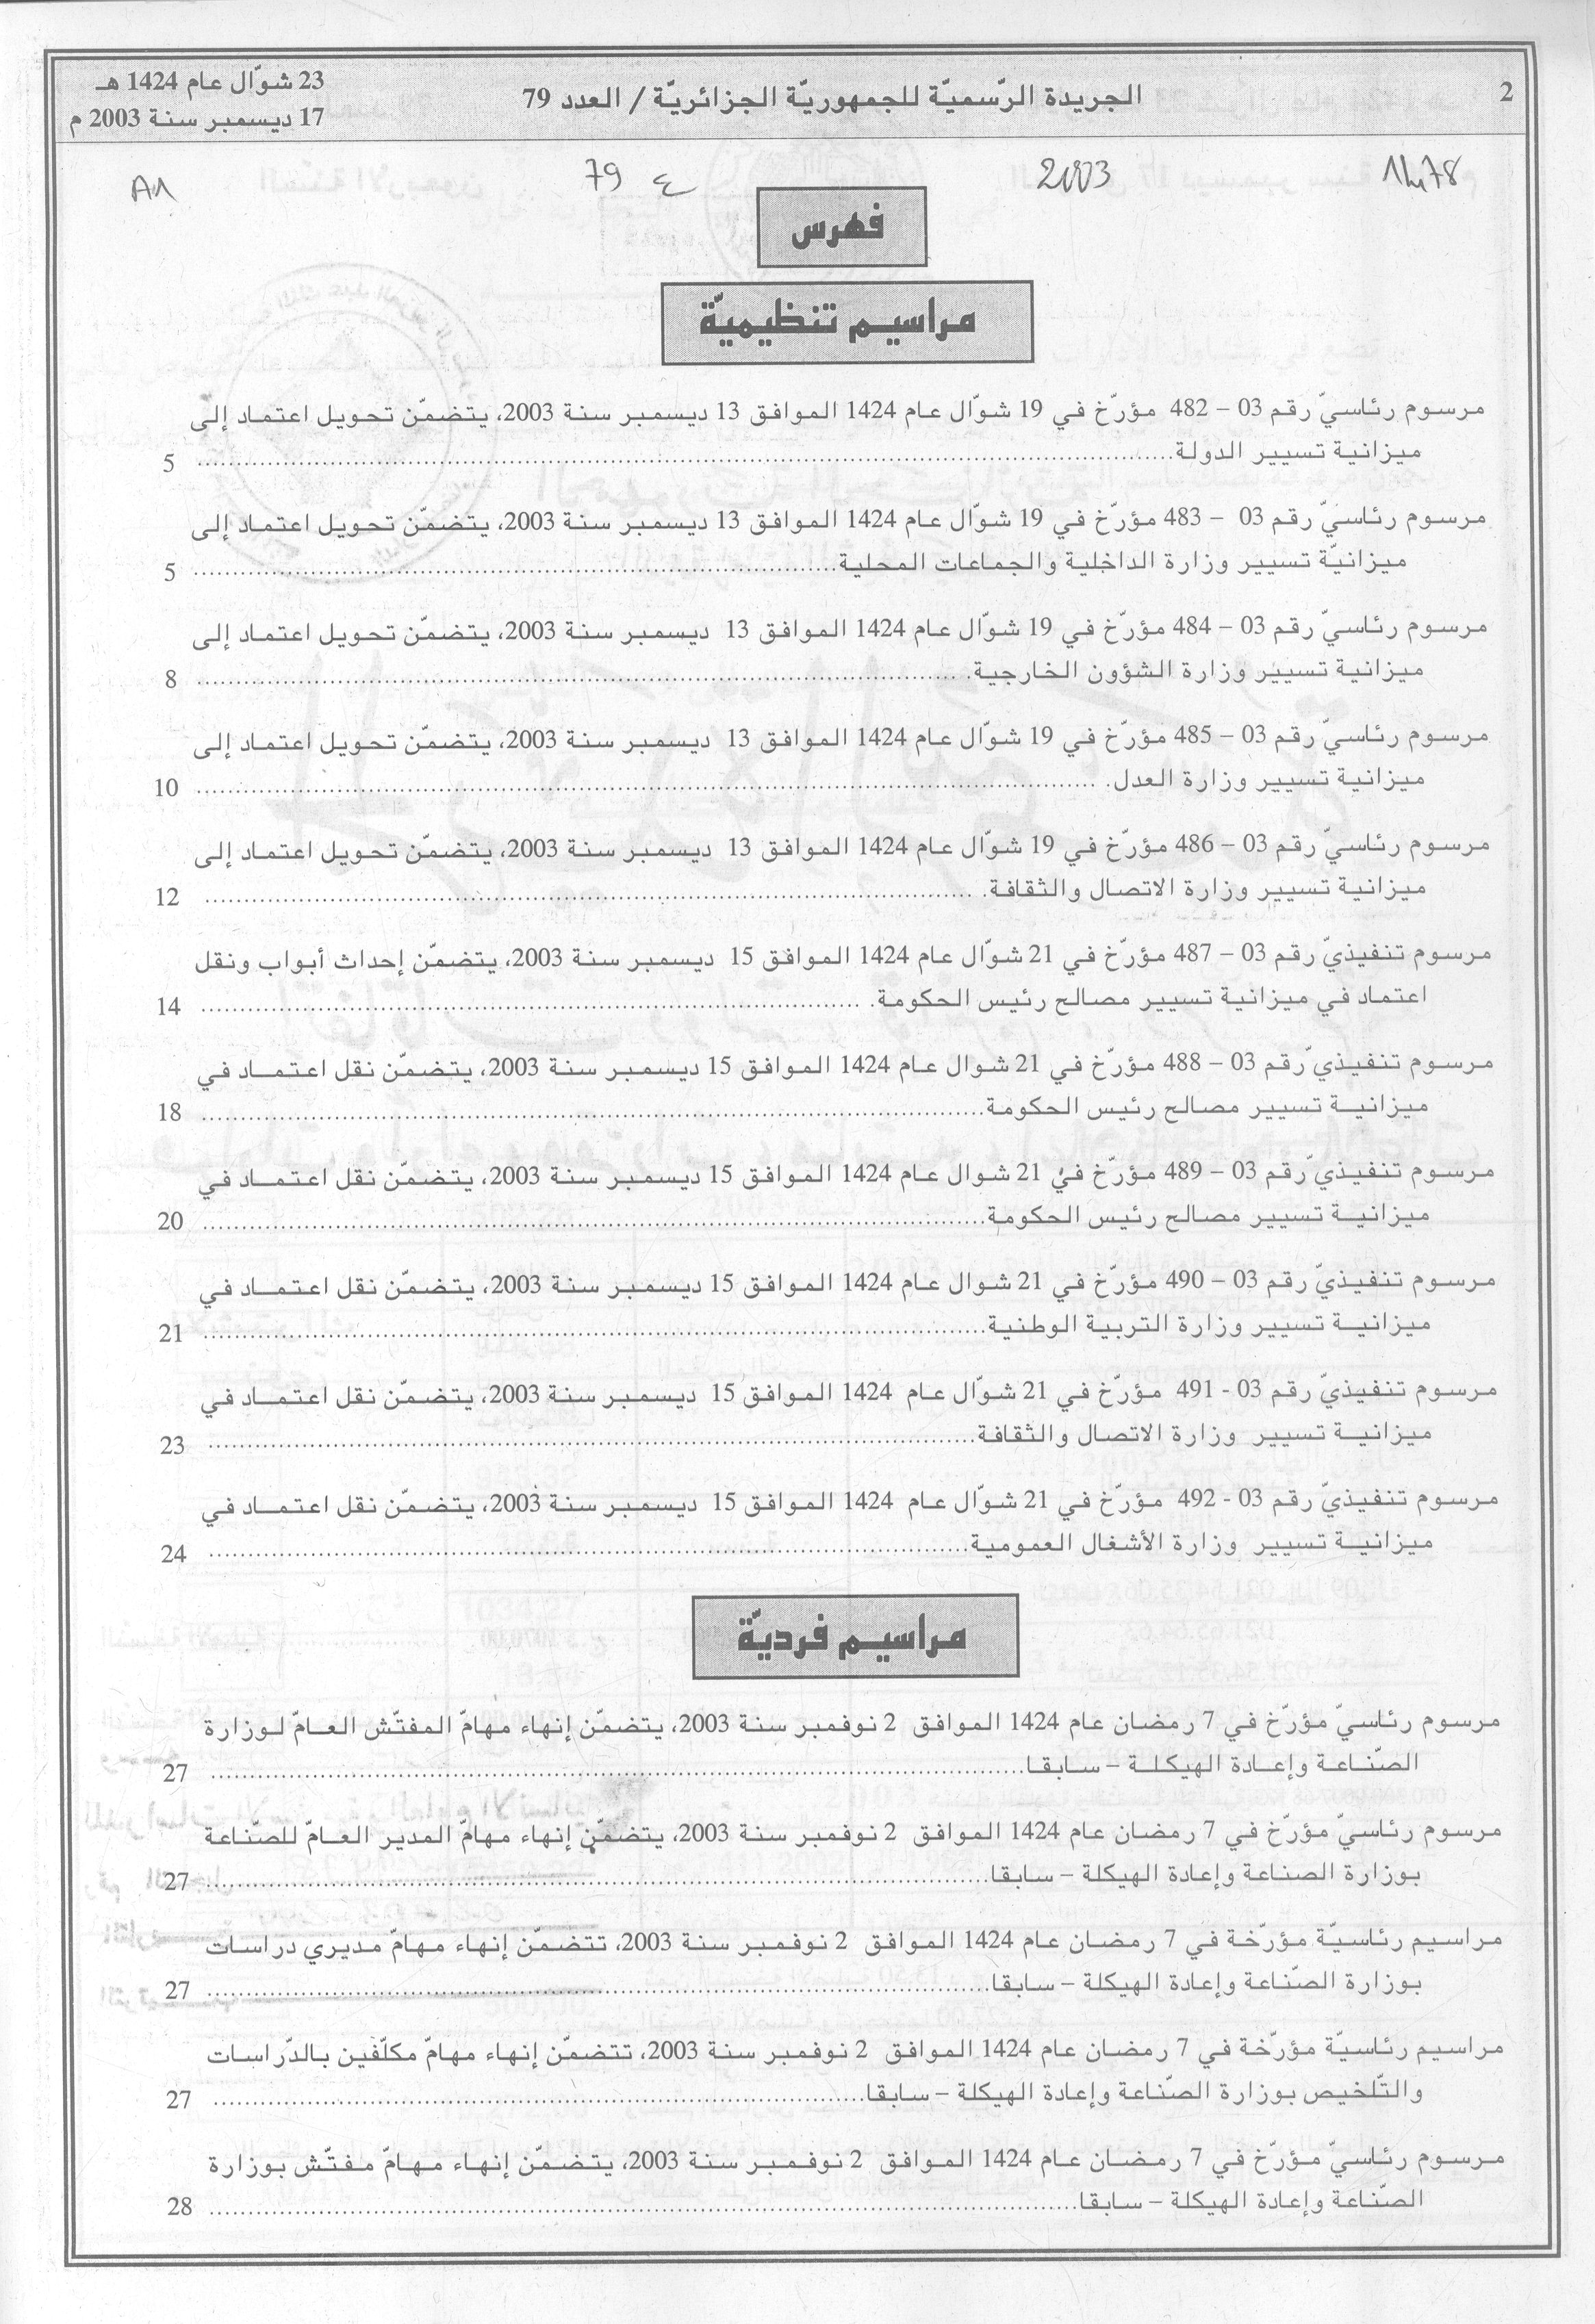 2
الجريدة الرّسميّة للجمهوريّة الجزائريّة / العدد 79
23 شوّال عام 1424 هـ
17 ديسمبر سنة 2003 م
1478 2003 ع 79 A1
فهرس
مراسيم تنظيميّة
مرسوم رئاسيّ رقم 03 – 482 مؤرّخ في 19 شوّال عام 1424 الموافق 13 ديسمبر سنة 2003، يتضمّن تحويل اعتماد إلى
ميزانية تسيير الدولة.......... 5
مرسوم رئاسيّ رقم 03 – 483 مؤرّخ في 19 شوّال عام 1424 الموافق 13 ديسمبر سنة 2003، يتضمّن تحويل اعتماد إلى
ميزانيّة تسيير وزارة الداخلية والجماعات المحلية.......... 5
مرسوم رئاسيّ رقم 03 – 484 مؤرّخ في 19 شوّال عام 1424 الموافق 13 ديسمبر سنة 2003، يتضمّن تحويل اعتماد إلى
ميزانية تسيير وزارة الشؤون الخارجية.......... 8
مرسوم رئاسيّ رقم 03 – 485 مؤرّخ في 19 شوّال عام 1424 الموافق 13 ديسمبر سنة 2003، يتضمّن تحويل اعتماد إلى
ميزانية تسيير وزارة العدل.......... 10
مرسوم رئاسيّ رقم 03 – 486 مؤرّخ في 19 شوّال عام 1424 الموافق 13 ديسمبر سنة 2003، يتضمّن تحويل اعتماد إلى
ميزانية تسيير وزارة الاتصال والثقافة.......... 12
مرسوم تنفيذيّ رقم 03 – 487 مؤرّخ في 21 شوّال عام 1424 الموافق 15 ديسمبر سنة 2003، يتضمّن إحداث أبواب ونقل
اعتماد في ميزانية تسيير مصالح رئيس الحكومة.......... 14
مرسوم تنفيذيّ رقم 03 – 488 مؤرّخ في 21 شوال عام 1424 الموافق 15 ديسمبر سنة 2003، يتضمّن نقل اعتماد في
ميزانية تسيير مصالح رئيس الحكومة.......... 18
مرسوم تنفيذيّ رقم 03 – 489 مؤرّخ في 21 شوال عام 1424 الموافق 15 ديسمبر سنة 2003، يتضمّن نقل اعتماد في
ميزانية تسيير مصالح رئيس الحكومة.......... 20
مرسوم تنفيذيّ رقم 03 – 490 مؤرّخ في 21 شوال عام 1424 الموافق 15 ديسمبر سنة 2003، يتضمّن نقل اعتماد في
ميزانية تسيير وزارة التربية الوطنية.......... 21
مرسوم تنفيذيّ رقم 03 - 491 مؤرّخ في 21 شوّال عام 1424 الموافق 15 ديسمبر سنة 2003، يتضمّن نقل اعتماد في
ميزانية تسيير وزارة الاتصال والثقافة.......... 23
مرسوم تنفيذيّ رقم 03 - 492 مؤرّخ في 21 شوّال عام 1424 الموافق 15 ديسمبر سنة 2003، يتضمّن نقل اعتماد في
ميزانية تسيير وزارة الأشغال العمومية.......... 24
مراسيم فرديّة
مرسوم رئاسيّ مؤرّخ في 7 رمضان عام 1424 الموافق 2 نوفمبر سنة 2003، يتضمّن إنهاء مهامّ المفتّش العامّ لوزارة
الصّناعة وإعادة الهيكلة – سابقا.......... 27
مرسوم رئاسيّ مؤرّخ في 7 رمضان عام 1424 الموافق 2 نوفمبر سنة 2003، يتضمّن إنهاء مهامّ المدير العامّ للصّناعة
بوزارة الصناعة وإعادة الهيكلة – سابقا.......... 27
مراسيم رئاسيّة مؤرّخة في 7 رمضان عام 1424 الموافق 2 نوفمبر سنة 2003، تتضمّن إنهاء مهامّ مديري دراسات
بوزارة الصّناعة وإعادة الهيكلة – سابقا.......... 27
مراسيم رئاسيّة مؤرّخة في 7 رمضان عام 1424 الموافق 2 نوفمبر سنة 2003، تتضمّن إنهاء مهامّ مكلّفين بالدّراسات
والتّلخيص بوزارة الصّناعة وإعادة الهيكلة – سابقا.......... 27
مرسوم رئاسيّ مؤرّخ في 7 رمضان عام 1424 الموافق 2 نوفمبر سنة 2003، يتضمّن إنهاء مهامّ مفتّش بوزارة
الصّناعة وإعادة الهيكلة – سابقا.......... 28